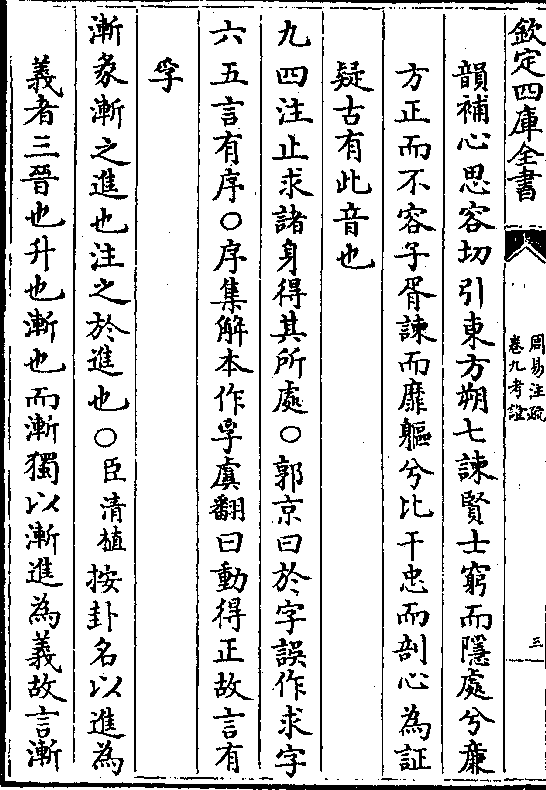 欽定四庫全書
周易注疏
卷九考證
三
韻補心思容切引東方朔七諫賢士窮而隱處兮廉
方正而不容子胥諫而靡軀兮比干忠而剖心為証
疑古有此音也
九四注止求諸身得其所處○郭京曰於字誤作求字
六五言有序○序集解本作孚虞翻曰動得正故言有
孚
漸彖漸之進也注之於進也○臣清植按卦名以進為
義者三晉也升也漸也而漸獨以漸進為義故言漸